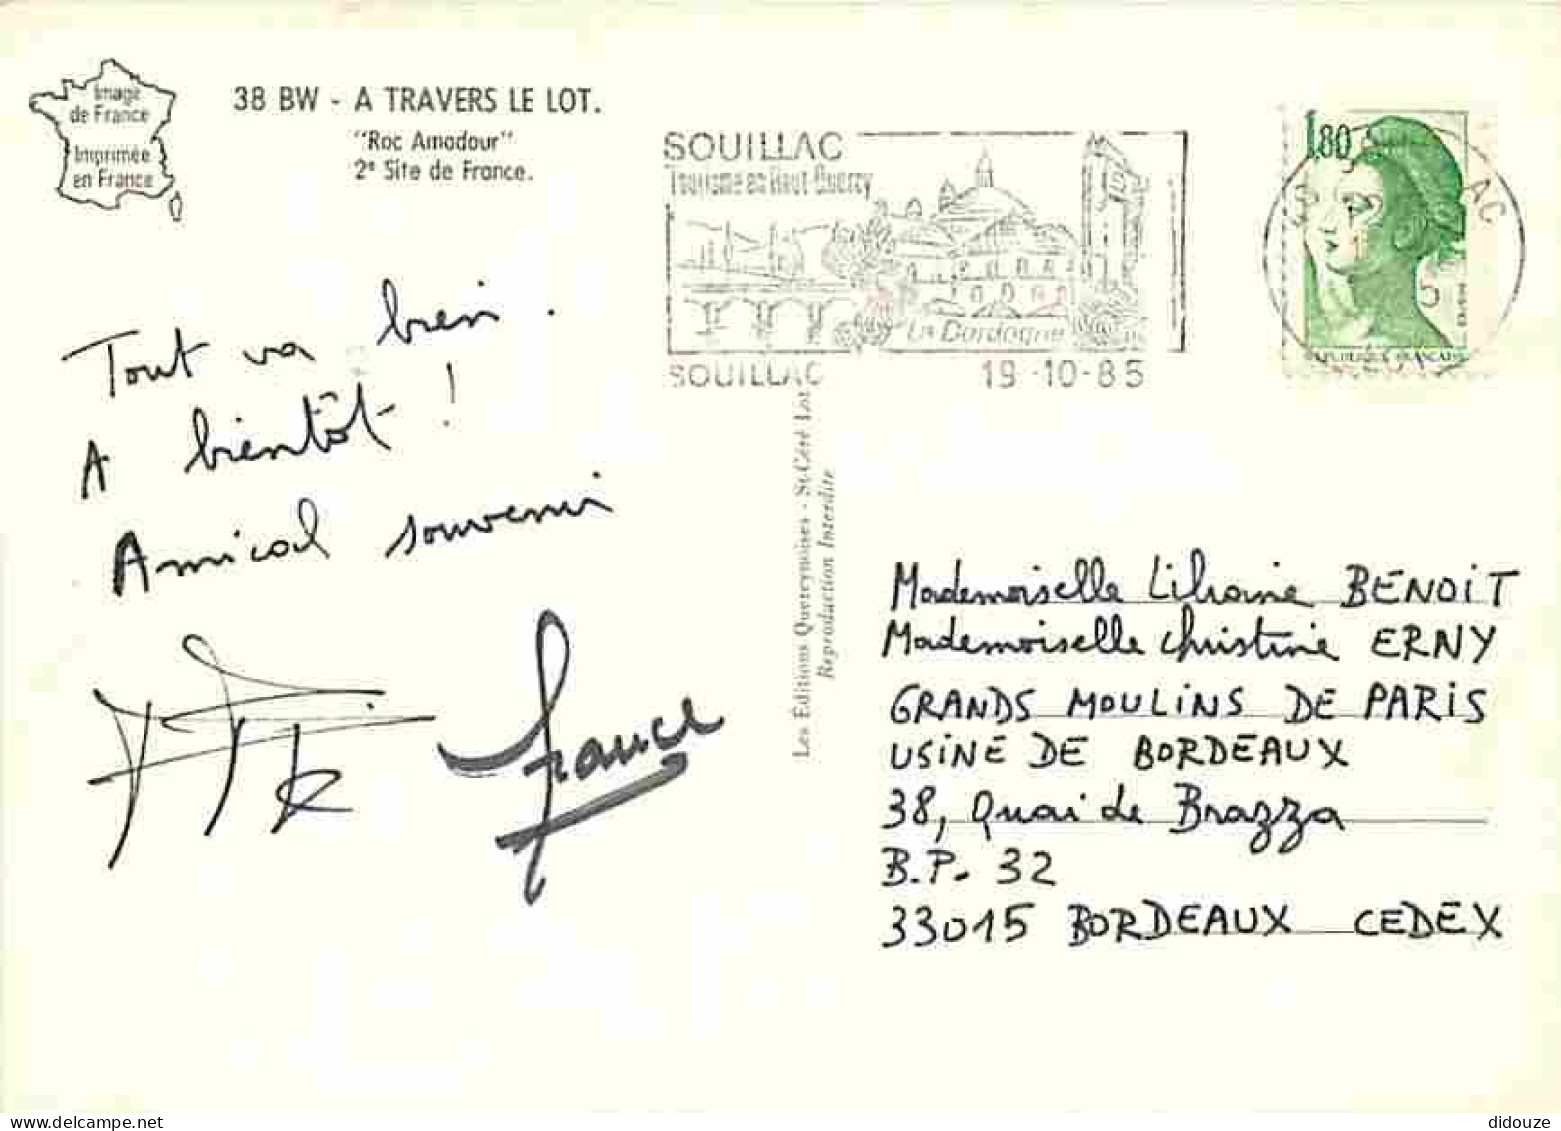 Image
de France
Imprimée
en France
38 BW - A TRAVERS LE LOT.
"Roc Amadour"
2e Site de France.
SOUILLAC
Tourisme en Haut Quercy
La Dordogne
SOUILLAC
19-10-85
1,80
REPUBLIQUE FRANÇAISE
AC
Tout va bien.
A bientôt !
Amical souvenir
France
Les Éditions Quercynoises - St-Céré Lot
Reproduction Interdite
Mademoiselle Liliane BENOIT
Mademoiselle Christine ERNY
GRANDS MOULINS DE PARIS
USINE DE BORDEAUX
38, Quai de Brazza
B.P. 32
33015 BORDEAUX CEDEX
didouze